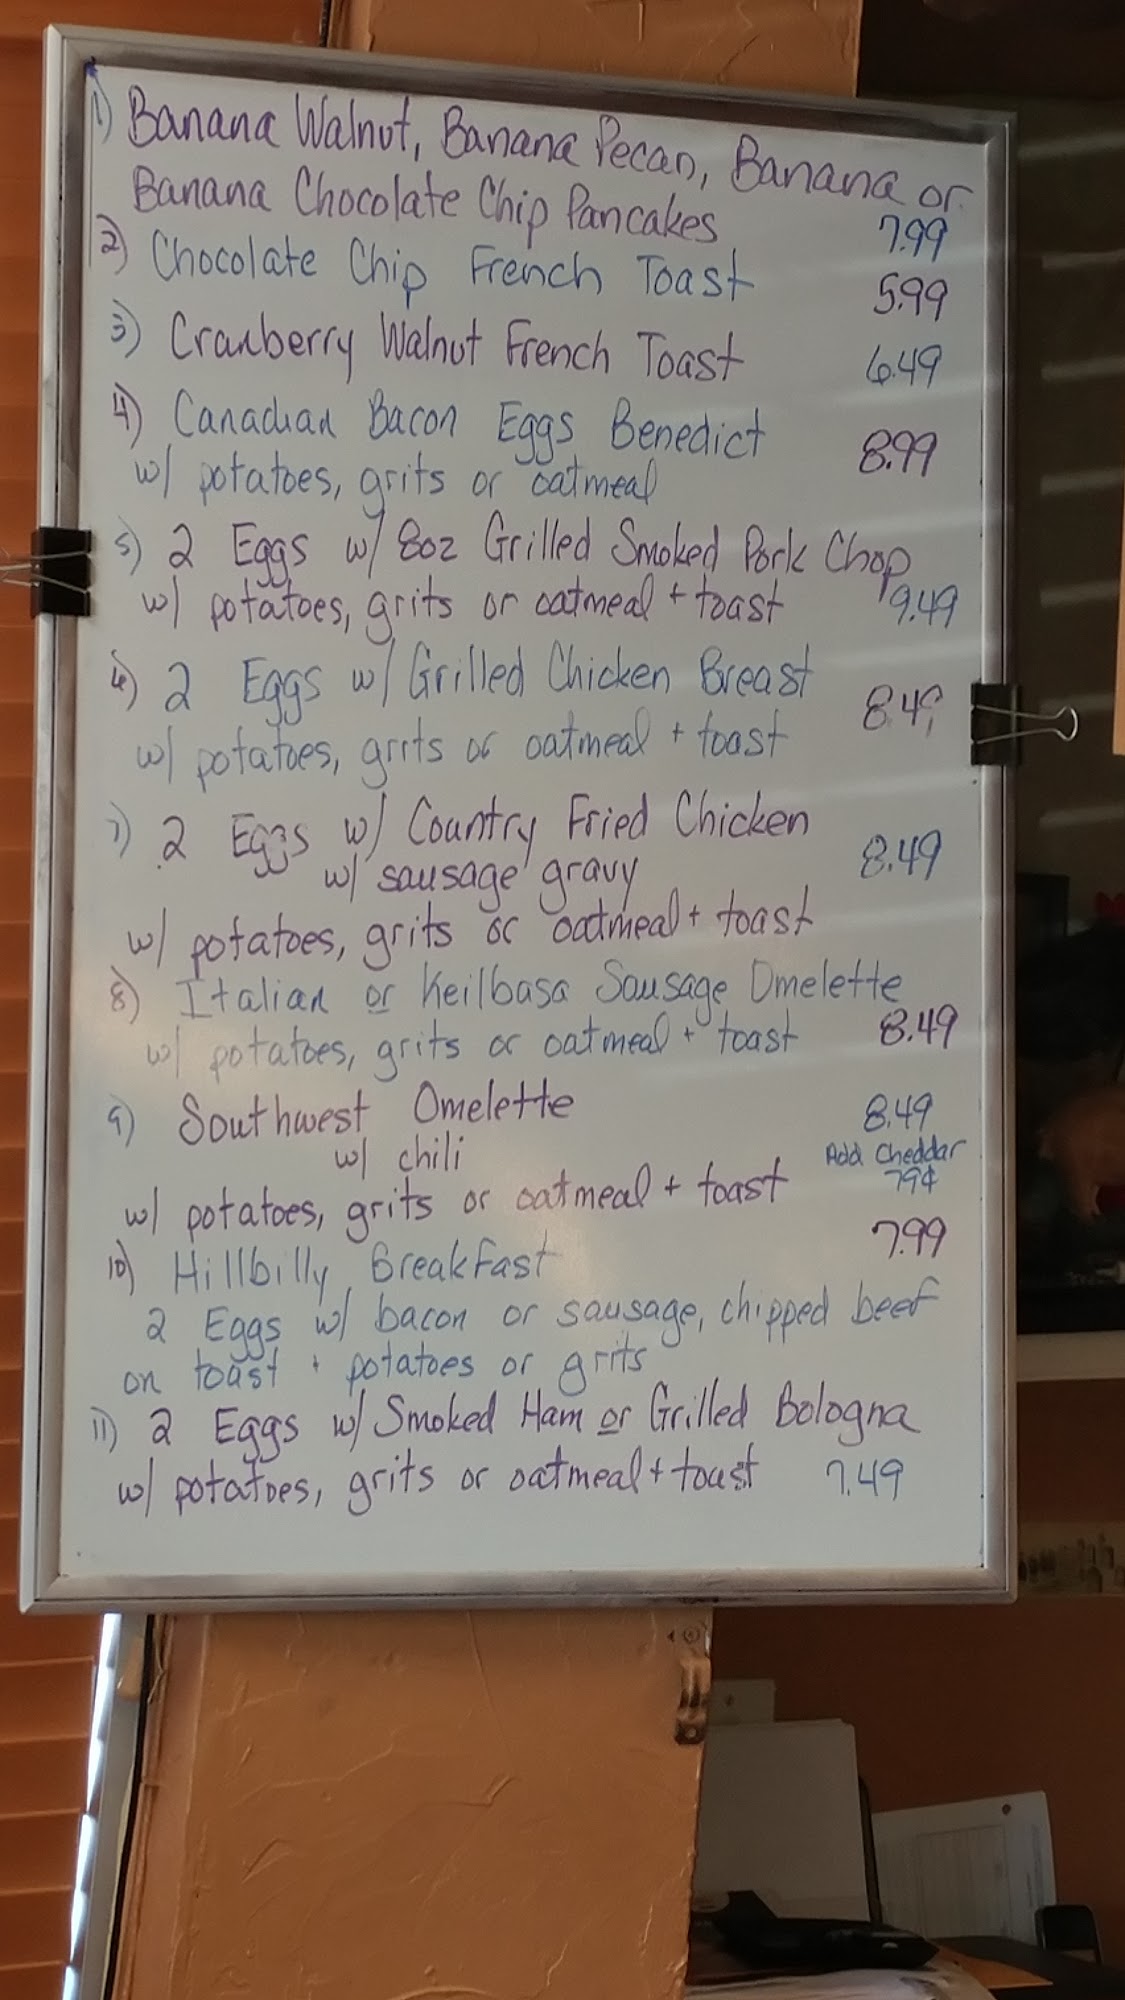 1) Banana Walnut, Banana Pecan, Banana or
Banana Chocolate Chip Pancakes 7.99
2) Chocolate Chip French Toast 5.99
3) Cranberry Walnut French Toast 6.49
4) Canadian Bacon Eggs Benedict 8.99
w/ potatoes, grits or oatmeal
5) 2 Eggs w/ 8oz Grilled Smoked Pork Chop
w/ potatoes, grits or oatmeal + toast 9.49
6) 2 Eggs w/ Grilled Chicken Breast 8.49
w/ potatoes, grits or oatmeal + toast
7) 2 Eggs w/ Country Fried Chicken 8.49
w/ sausage gravy
w/ potatoes, grits or oatmeal + toast
8) Italian or Keilbasa Sausage Omelette
w/ potatoes, grits or oatmeal + toast 8.49
9) Southwest Omelette 8.49
w/ chili Add Cheddar
79¢
w/ potatoes, grits or oatmeal + toast
10) Hillbilly Breakfast 7.99
2 Eggs w/ bacon or sausage, chipped beef
on toast + potatoes or grits
11) 2 Eggs w/ Smoked Ham or Grilled Bologna
w/ potatoes, grits or oatmeal + toast 7.49